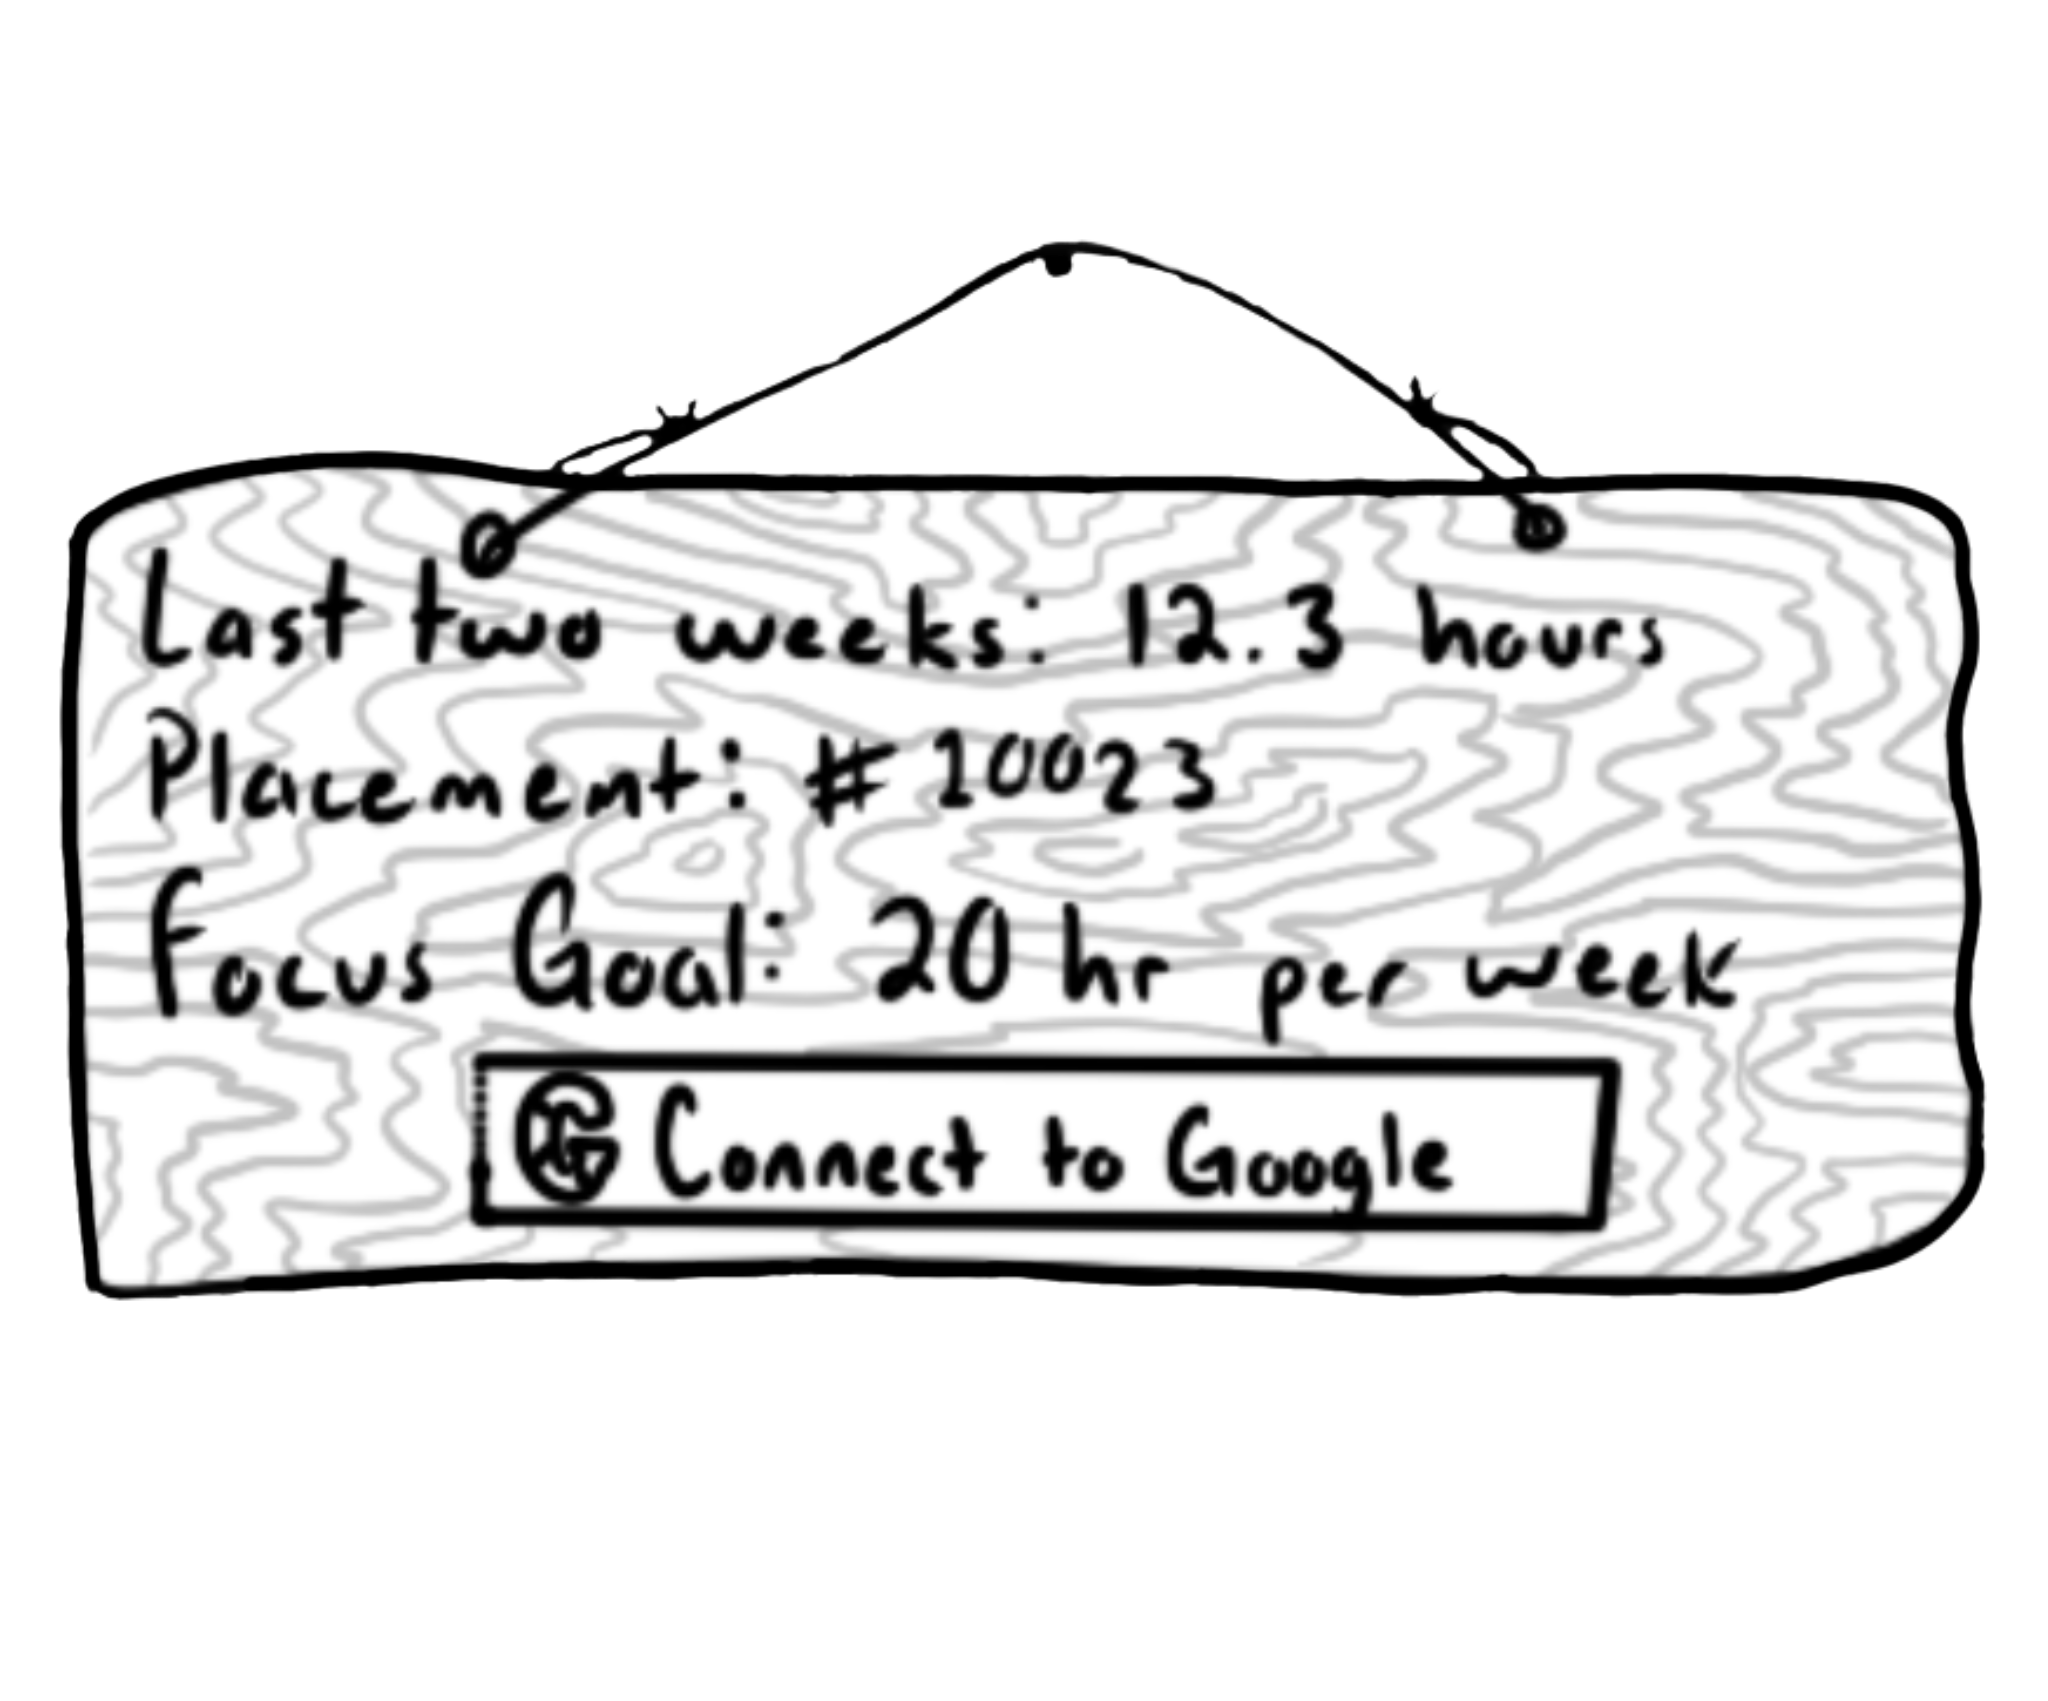 Last two weeks: 12.3 hours
Placement: #10023
Focus Goal: 20 hr per week
G Connect to Google